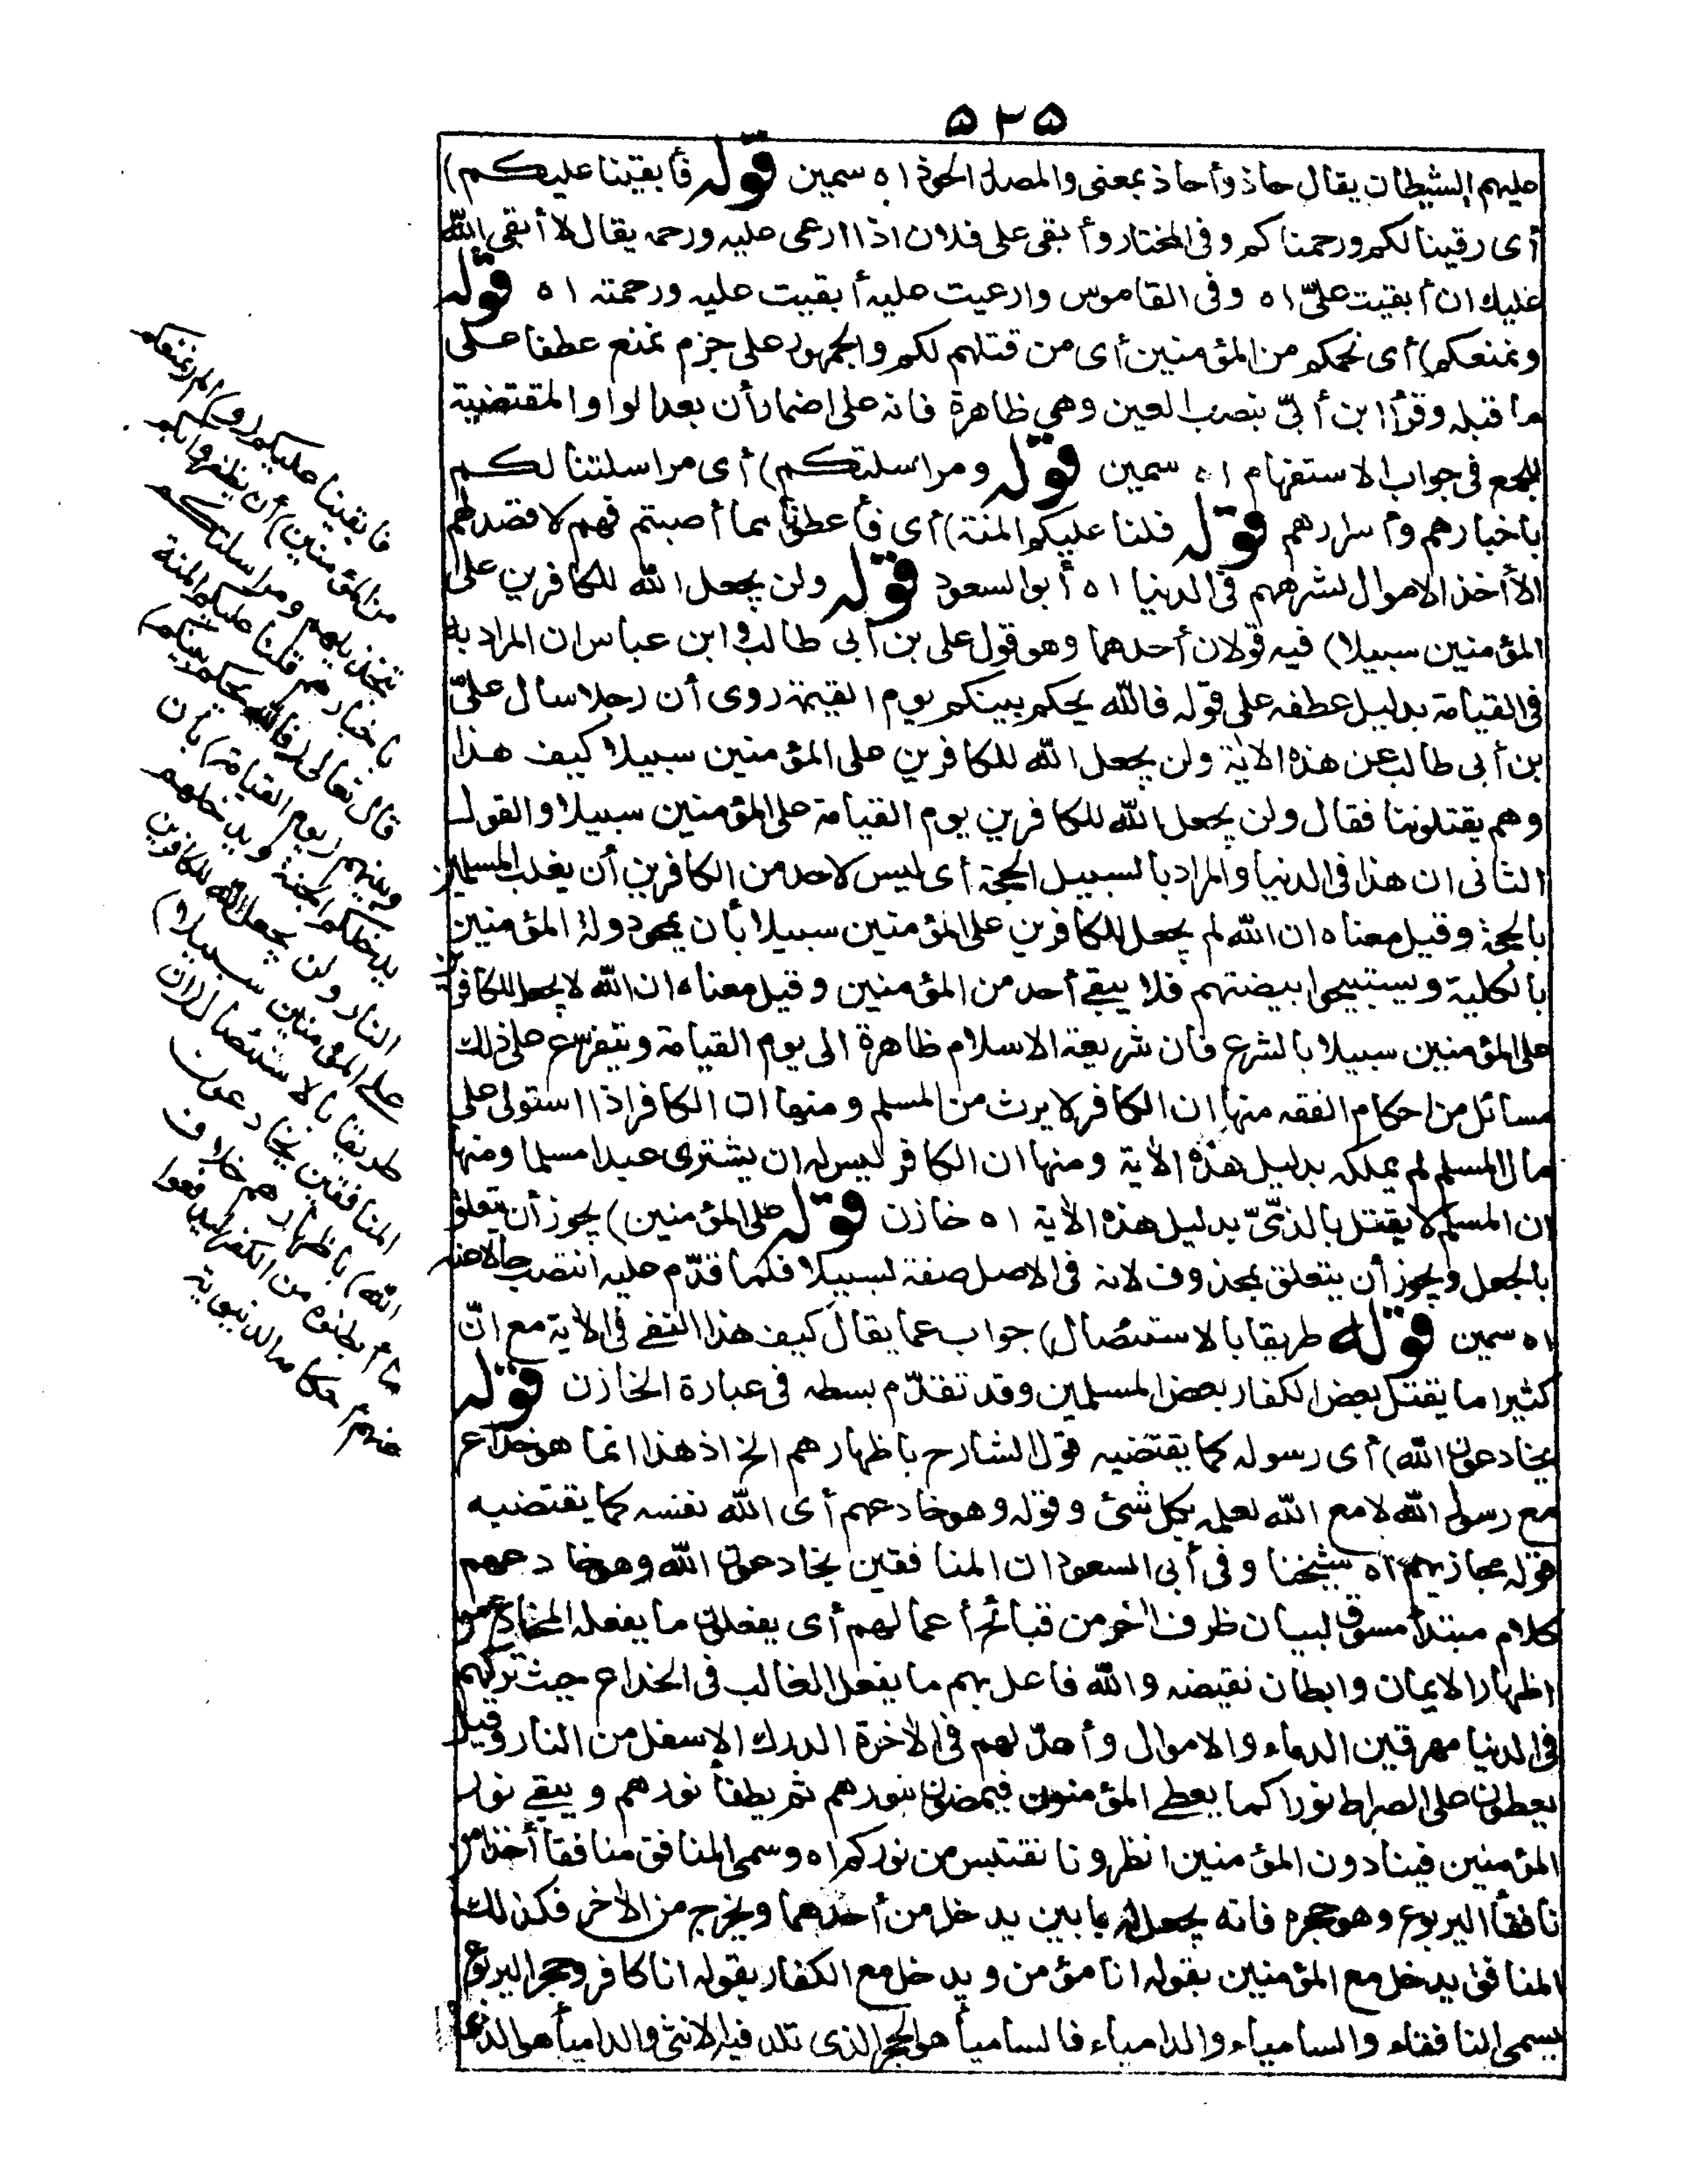 ۵۲۵
عليهم الشيطان يقال حاذ وأحاذ بمعنى والمصدر الحوذ ا ه سمين قوله فأبقينا عليكم)
أى رقينا لكم ورحمناكم وفى المختار وأبقى على فلان اذا ارعى عليه ورحمه يقال لا أبقى الله
عليك ان أبقيت علىّ ا ه وفى القاموس وارعيت عليه أبقيت عليه ورحمته ا ه قوله
ونمنعكم) أى نحمكم من المؤمنين أى من قتلهم لكم والجمهور على جزم نمنع عطفا على
ما قبله وقرأ ابن أبىّ بنصب العين وهى ظاهرة فانه على اضمار أن بعد الواو المقتضية
للجمع فى جواب الاستفهام ا ه سمين قوله ومراسلتكم) أى مراسلتنا لكم
بأخبارهم وأسرارهم قوله فلنا عليكم المنة) أى فأعطونا مما أصبتم فهم لا قصد لهم
الا أخذ الاموال لشرههم فى الدنيا ا ه أبو السعود قوله ولن يجعل الله للكافرين على
المؤمنين سبيلا) فيه قولان أحدهما وهو قول على بن أبى طالب وابن عباس ان المراد به
فى القيامة بدليل عطفه على قوله فالله يحكم بينكم يوم القيمة روى أن رجلا سأل علىّ
بن أبى طالب عن هذه الاية ولن يجعل الله للكافرين على المؤمنين سبيلا كيف هذا
وهم يقتلوننا فقال ولن يجعل الله للكافرين يوم القيامة على المؤمنين سبيلا والقول
الثانى ان هذا فى الدنيا والمراد بالسبيل الحجة أى ليس لاحد من الكافرين أن يغلب المسلمين
بالحجة وقيل معناه ان الله لم يجعل للكافرين على المؤمنين سبيلا بأن يمحو دولة المؤمنين
بالكلية ويستبيحوا بيضتهم فلا يبقى أحد من المؤمنين وقيل معناه ان الله لا يجعل للكافرين
على المؤمنين سبيلا بالشرع فان شريعة الاسلام ظاهرة الى يوم القيامة ويتفرع على ذلك
مسائل من احكام الفقه منها ان الكافر لا يرث من المسلم ومنها ان الكافر اذا استولى على
مال المسلم لم يملكه بدليل هذه الاية ومنها ان الكافر ليس له ان يشترى عبدا مسلما ومنها
ان المسلم لا يقتل بالذمّىّ بدليل هذه الاية ا ه خازن قوله على المؤمنين) يجوز أن يتعلق
بالجعل ويجوز أن يتعلق بمحذوف لانه فى الاصل صفة لسبيلا فلما قدّم عليه انتصب حالا عنه
ا ه سمين قوله طريقا بالاستئصال) جواب عما يقال كيف هذا النفى فى الاية مع انّ
كثيرا ما يقتل بعض الكفار بعض المسلمين وقد تقدّم بسطه فى عبارة الخازن قوله
يخادعون الله) أى رسوله كما يقتضيه قول الشارح باظهارهم الخ اذ هذا انما هو خداع
مع رسول الله لا مع الله لعلمه بكل شئ وقوله وهو خادعهم أى الله نفسه كما يقتضيه
قوله مجازيهم ا ه شيخنا وفى أبى السعود ان المنافقين يخادعون الله وهو خادعهم
كلام مبتدأ مسوق لبيان طرف اخر من قبائح أعمالهم أى يفعلون ما يفعله المخادع من
اظهار الايمان وابطان نقيضه والله فاعل بهم ما يفعل الغالب فى الخداع حيث تركهم
فى الدنيا معرقين الدماء والاموال وأعدّ لهم فى الاخرة الدرك الاسفل من النار وقيل
يعطون على الصراط نورا كما يعطى المؤمنون فيمضون بنورهم ثم يطفأ نورهم ويبقى نور
المؤمنين فينادون المؤمنين انظرونا نقتبس من نوركم ا ه وسمى المنافق منافقا أخذا من
نافقاأ اليربوع وهو حجره فانه يجعل له بابين يدخل من أحدهما ويخرج من الاخر فكذلك
المنافق يدخل مع المؤمنين بقوله انا مؤمن ويدخل مع الكفار بقوله انا كافر وحجر اليربوع
يسمى النافقاء والسامياء والدامياء فالسامياأ هو الحجر الذى تلد فيه الانثى والدامياأ هو الذى
فابقينا عليكم (و) الم (نمنعكم
من المؤمنين) أن يظفروا بكم
بتخذيلهم ومراسلتكم
باخبارهم فلنا عليكم المنة
قال تعالى (فالله يحكم بينكم)
وبينهم (يوم القيامة) بأن
يدخلكم الجنة ويدخلهم
النار ولن يجعل الله للكافرين
على المؤمنين سبيلا)
طريقا بالاستئصال (ان
المنافقين يخادعون
الله) باظهارهم خلاف
ما أبطنوه من الكفر ليدفعوا
عنهم احكامه الدنيوية